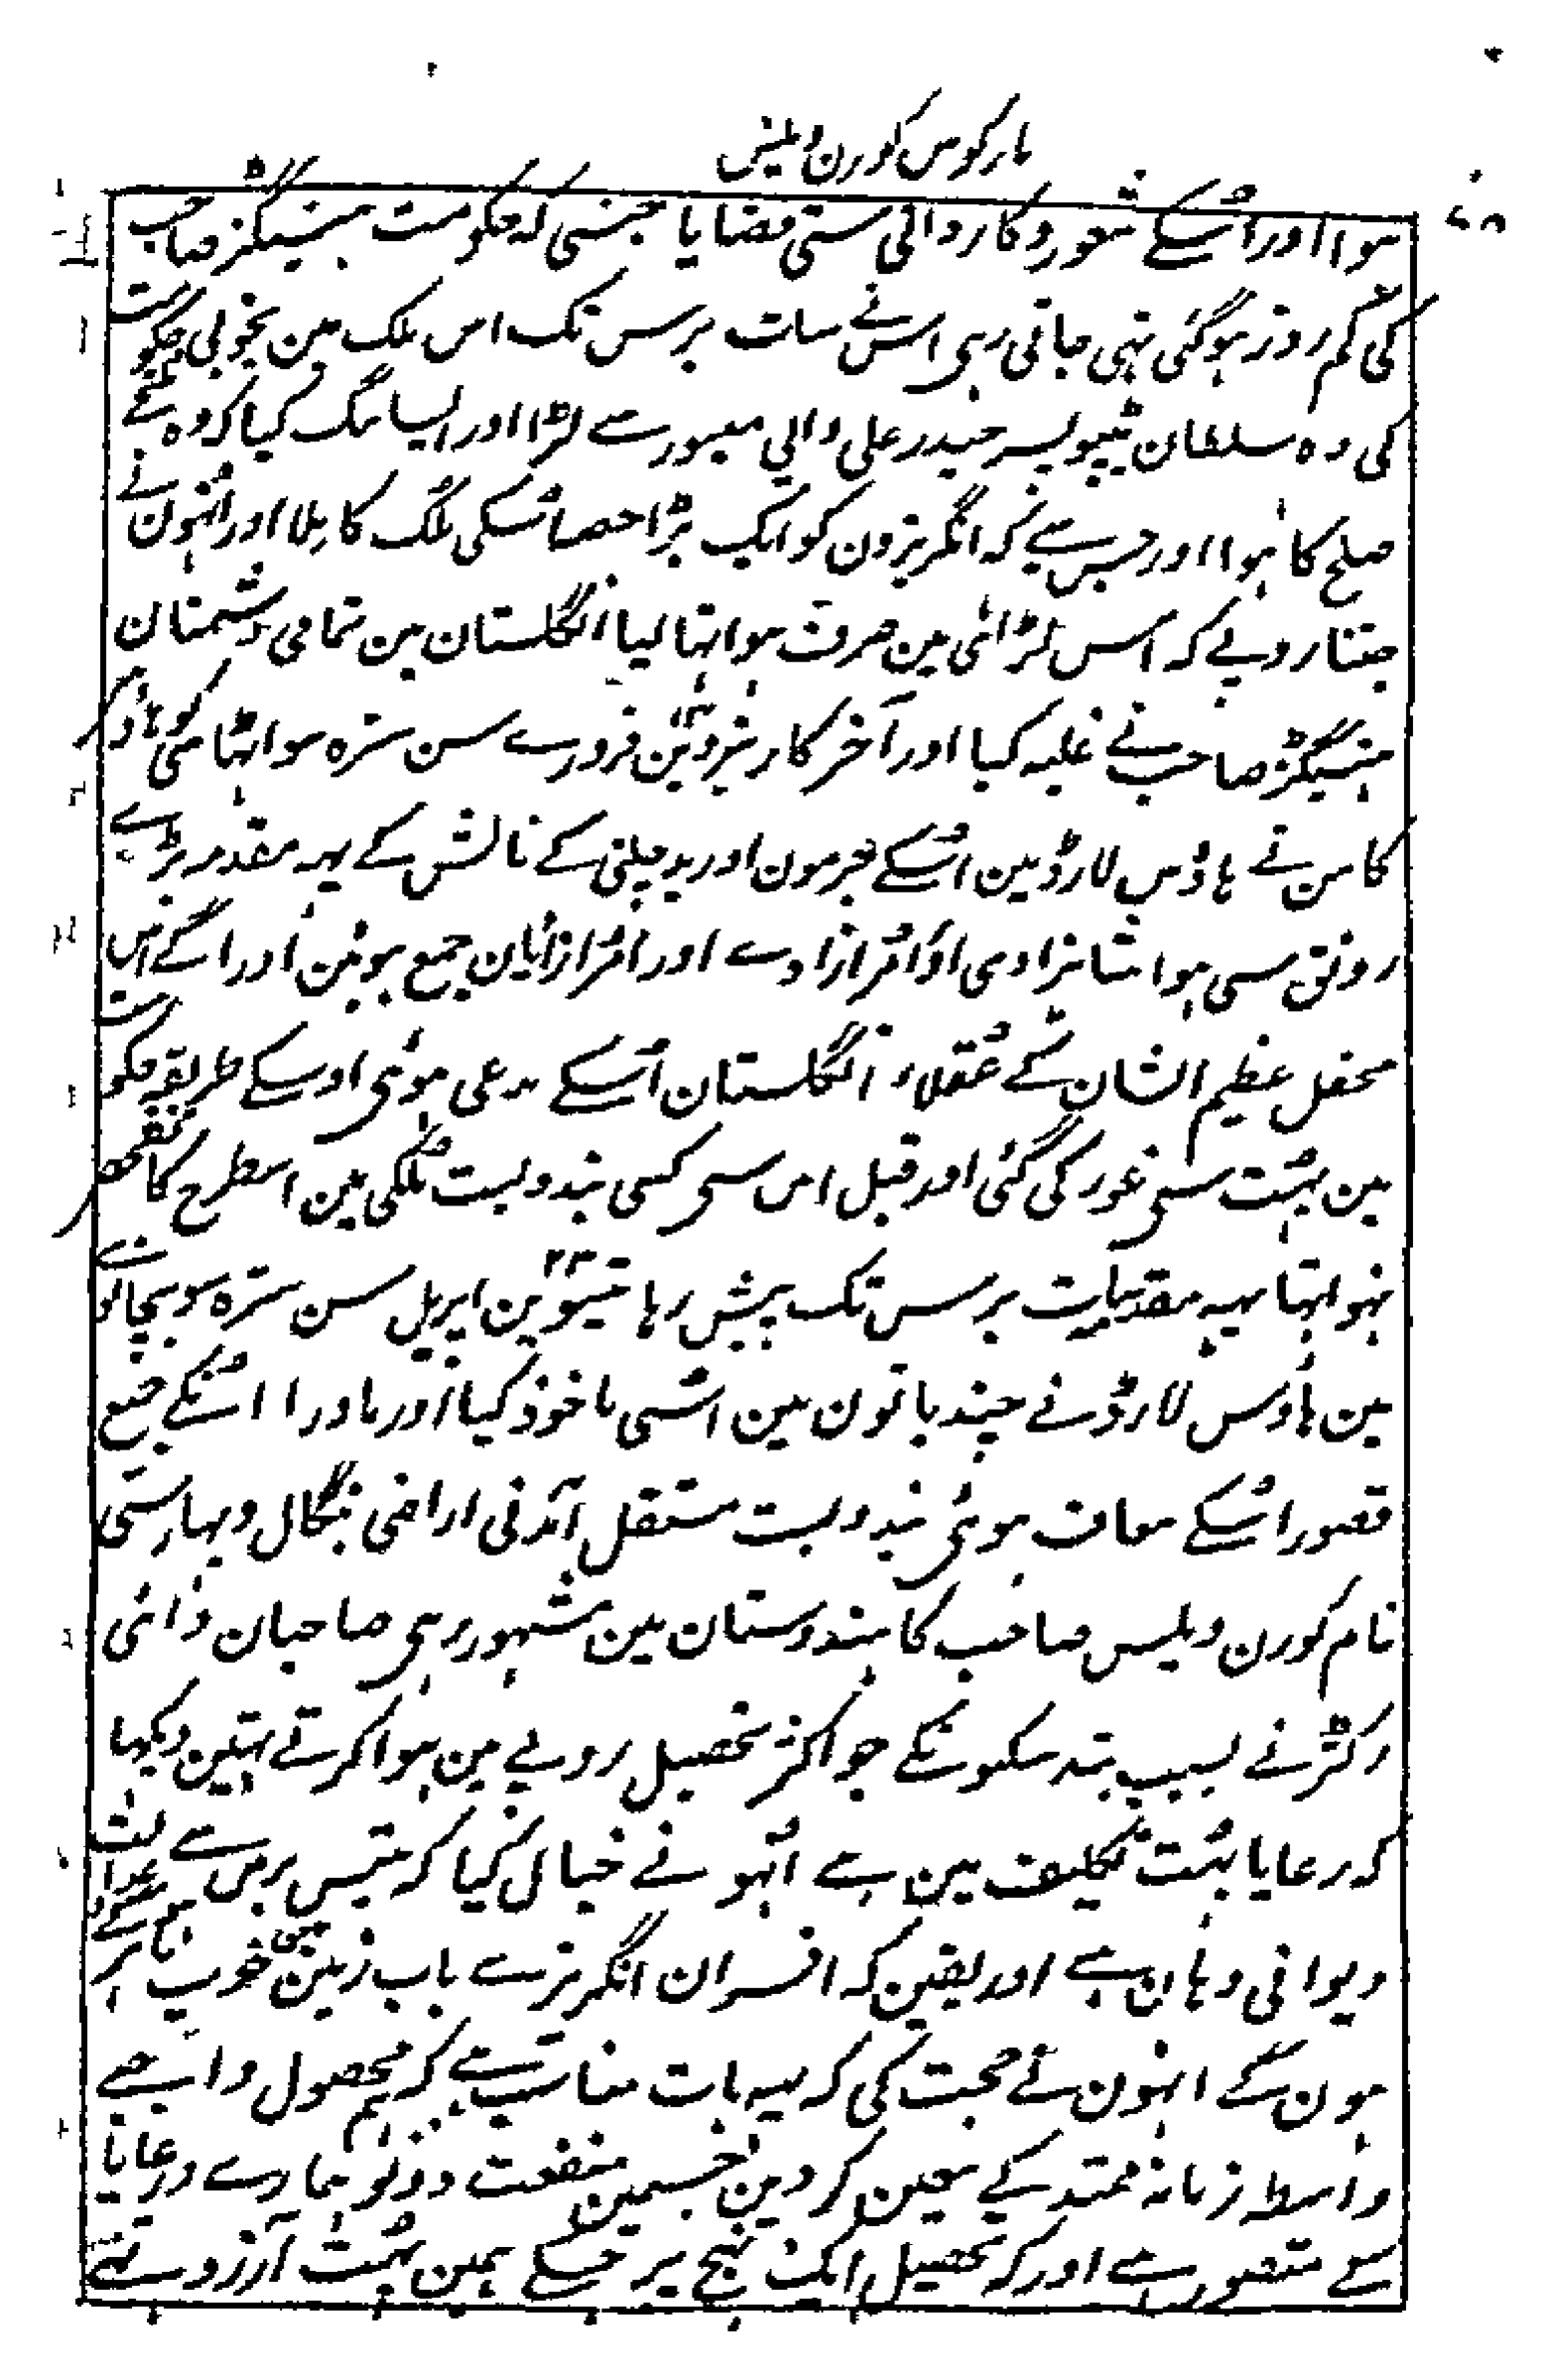 مارکوس کورن ویلیس
۷۸
ہوا اور اُسکے شعور و کاردانی ستی قضایا جنسی کہ حکومت ہیسٹنگز صاحب
کی کم روز ہوگئی نہی جاتی رہی اس نے سات برس تک اس ملک مین بخوبی حکومت
کی وہ سلطان ٹیپو پسر حیدر علی والی میسور سے لڑا اور ایسا تنگ کیا کہ وہ ملتجے
صلح کا ہوا اور جس سے کہ انگریزون کو ایک بڑا حصا اُسکی مُلک کا مِلا اور اُنہون نے
جتنا روپے کہ اس لڑائی مین صرف ہوا تہا لیا انگلستان مین تمامی دشمنان
ہیسٹنگز صاحب نے غلبہ کیا اور آخر کار تیروین ۱۳ فروری سن سترہ سو اٹہاسی کو ہاؤس
کامن نے ہاؤس لارڈ مین اُسکے جرمون اور بدچلنی کے نالش کے یہہ مقدمہ بڑے
رونق سی ہوا شاہزادی او امرازادے اور امرازادیان جمع ہوئین اور اگے اس
محفل عظیم الشان کے عُقلاء انگلستان اُسکے مدعی ہوئی اوسکے طریقہ حکومت
مین بہُت سی غور کی گئی اور قبل اس سی کسی بندوبست مُلکی مین اسطرح کا تفحص
نہوا تہا یہہ مقدمہ سات برس تک پیش رہا تیئیسوین ۲۳ اپریل سن سترہ سو پچانوے
مین ہاؤس لارڈ نے چند باتون مین اُسی ماخوذ کیا اور ماورا اُنکے جمیع
قصور اُسکے معاف ہوئی بندوبست مستقل آمدنی اراضی بنگال و بہار ستی
نام کورن ویلیس صاحب کا ہندوستان مین مشہور رہی صاحبان دائی
رکٹر نے بسبب بند سکونکے جو اکثر تحصیل روپے مین ہوا کرتے تہین دیکہا
کہ رعایا بہُت تکلیف مین ہے اُنہو نے خیال کیا کہ تیس برس سے عدالت
دیوانی وہان ہے اور یقین کہ افسران انگریزے باب زمین مین خوب
ہون گے انہون نے حجت کی کہ یہہ بات مناسب ہے کہ ہم محصول واجبے
واسطہ زمانہ ممتد کے معین کر دین جسمین منفعت دونو ہمارے و رعایا
سے متصور ہے اور کہ تحصیل ایک نہج پر جسکے ہمین بہُت آرزو ہتے